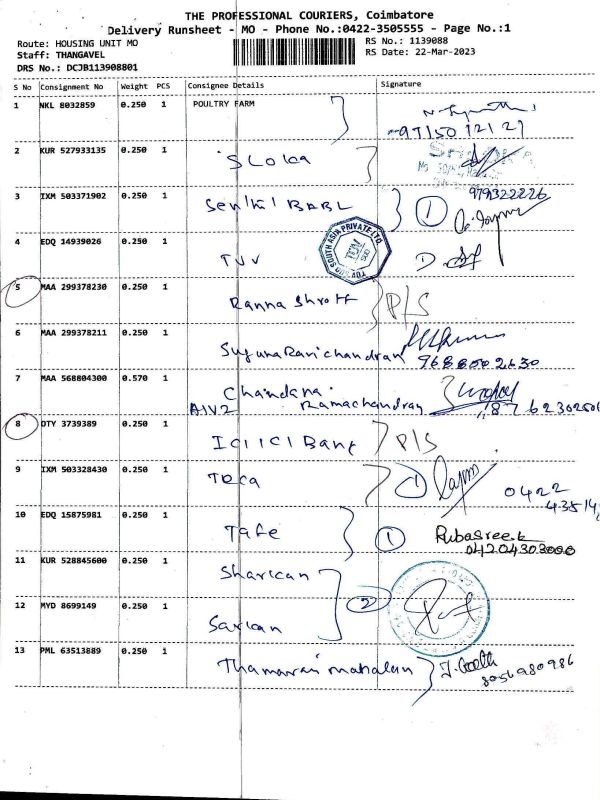 THE PROFESSIONAL COURIERS, Coimbatore
Delivery Runsheet - MO - Phone No.:0422-3505555 - Page No.:1
Route: HOUSING UNIT MO RS No.: 1139088
Staff: THANGAVEL RS Date: 22-Mar-2023
DRS No.: DCJB113908801
S No Consignment No Weight PCS Consignee Details Signature
1 NKL 8032859 0.250 1 POULTRY FARM
97150 12127
2 KUR 527933135 0.250 1
Sloka
3 IXM 503371902 0.250 1 979322226
Senthil BABL 1
4 EDQ 14939026 0.250 1
TVV
5 MAA 299378230 0.250 1
Ranna Shroff P/S
6 MAA 299378211 0.250 1
Suguna Ravichandran 9688002630
7 MAA 568804300 0.570 1 Chandana
A1V2 Ramachandran
8 OTY 3739389 0.250 1
ICIICI Bank P/S
9 IXM 503328430 0.250 1
TDCA 1 0422
10 EDQ 15875981 0.250 1
Tafe 1 Rubasree.k
11 KUR 528845600 0.250 1 04204303000
Sharican
12 MYD 8699149 0.250 1 2
Sarkan
13 PML 63513889 0.250 1
Thamarai mahalan 8056980986